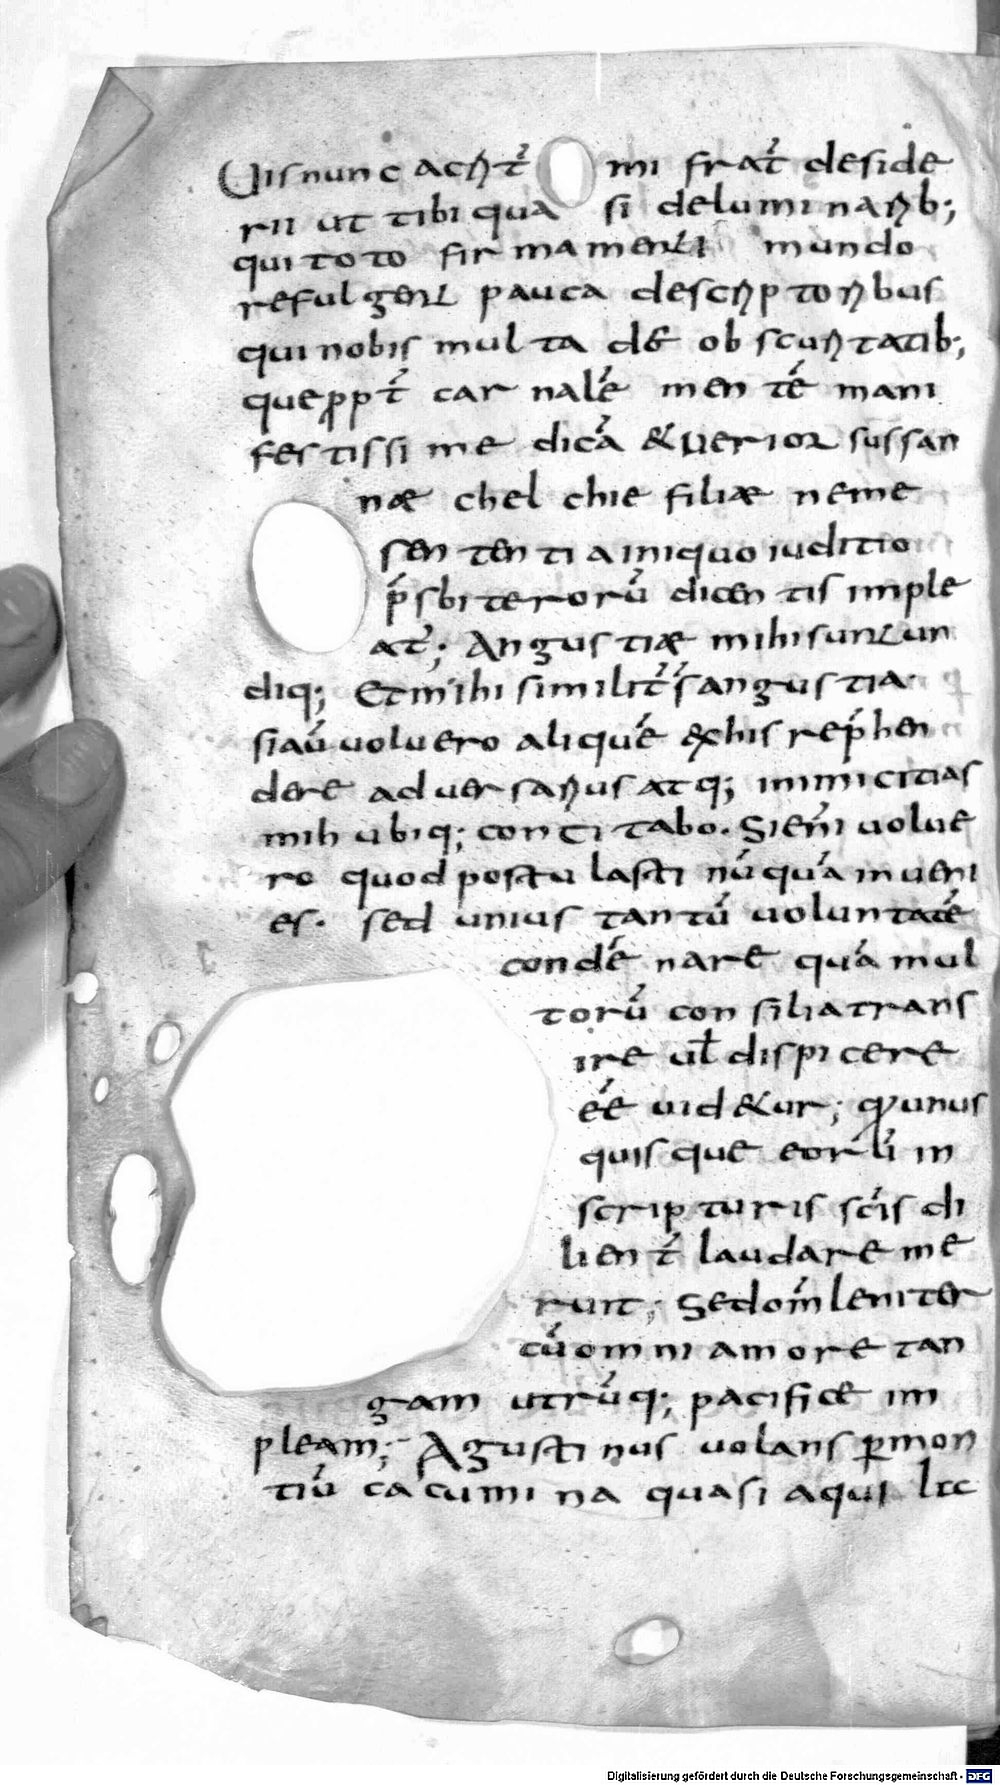 Uis nunc acrit̃ mi frat̃ deside
rii ut tibi qua si de luminarib;
qui toto firmamenti mundo
refulgent pauca de scriptoribus
qui nobis multa de& obscuritatib;
que ppt̃ carnalẽ mentẽ mani
festissime dicã & uerior sussan
næ chelchie filiæ neme
sententia iniquo iuditio
p̃sbiterorũ dicentis imple
at̃; Angustiæ mihi sunt un
diq; Et mihi similit̃ s̃ angustia
si aũ uoluero aliquẽ ex his rep̃hen
dere aduersarius atq; inimicitias
mih ubiq; concitabo. Si eñi uolue
ro quod postulasti nũquã inueni
es. sed unius tantũ uoluntatẽ
condẽnare quã mul
torũ consilia trans
ire ul̃ dispicere
ẽẽ uid&ur; unus
quisque eor in
scripturis sc̃is di
lient̃ laudare me
ruit; Sed om̃ leniter
cũ omni amore tan
gam utrũq; pacifice im
pleam; Agustinus uolans p̱ mon
tiũ cacumina quasi aqui
Digitalisierung gefördert durch die Deutsche Forschungsgemeinschaft - DFG